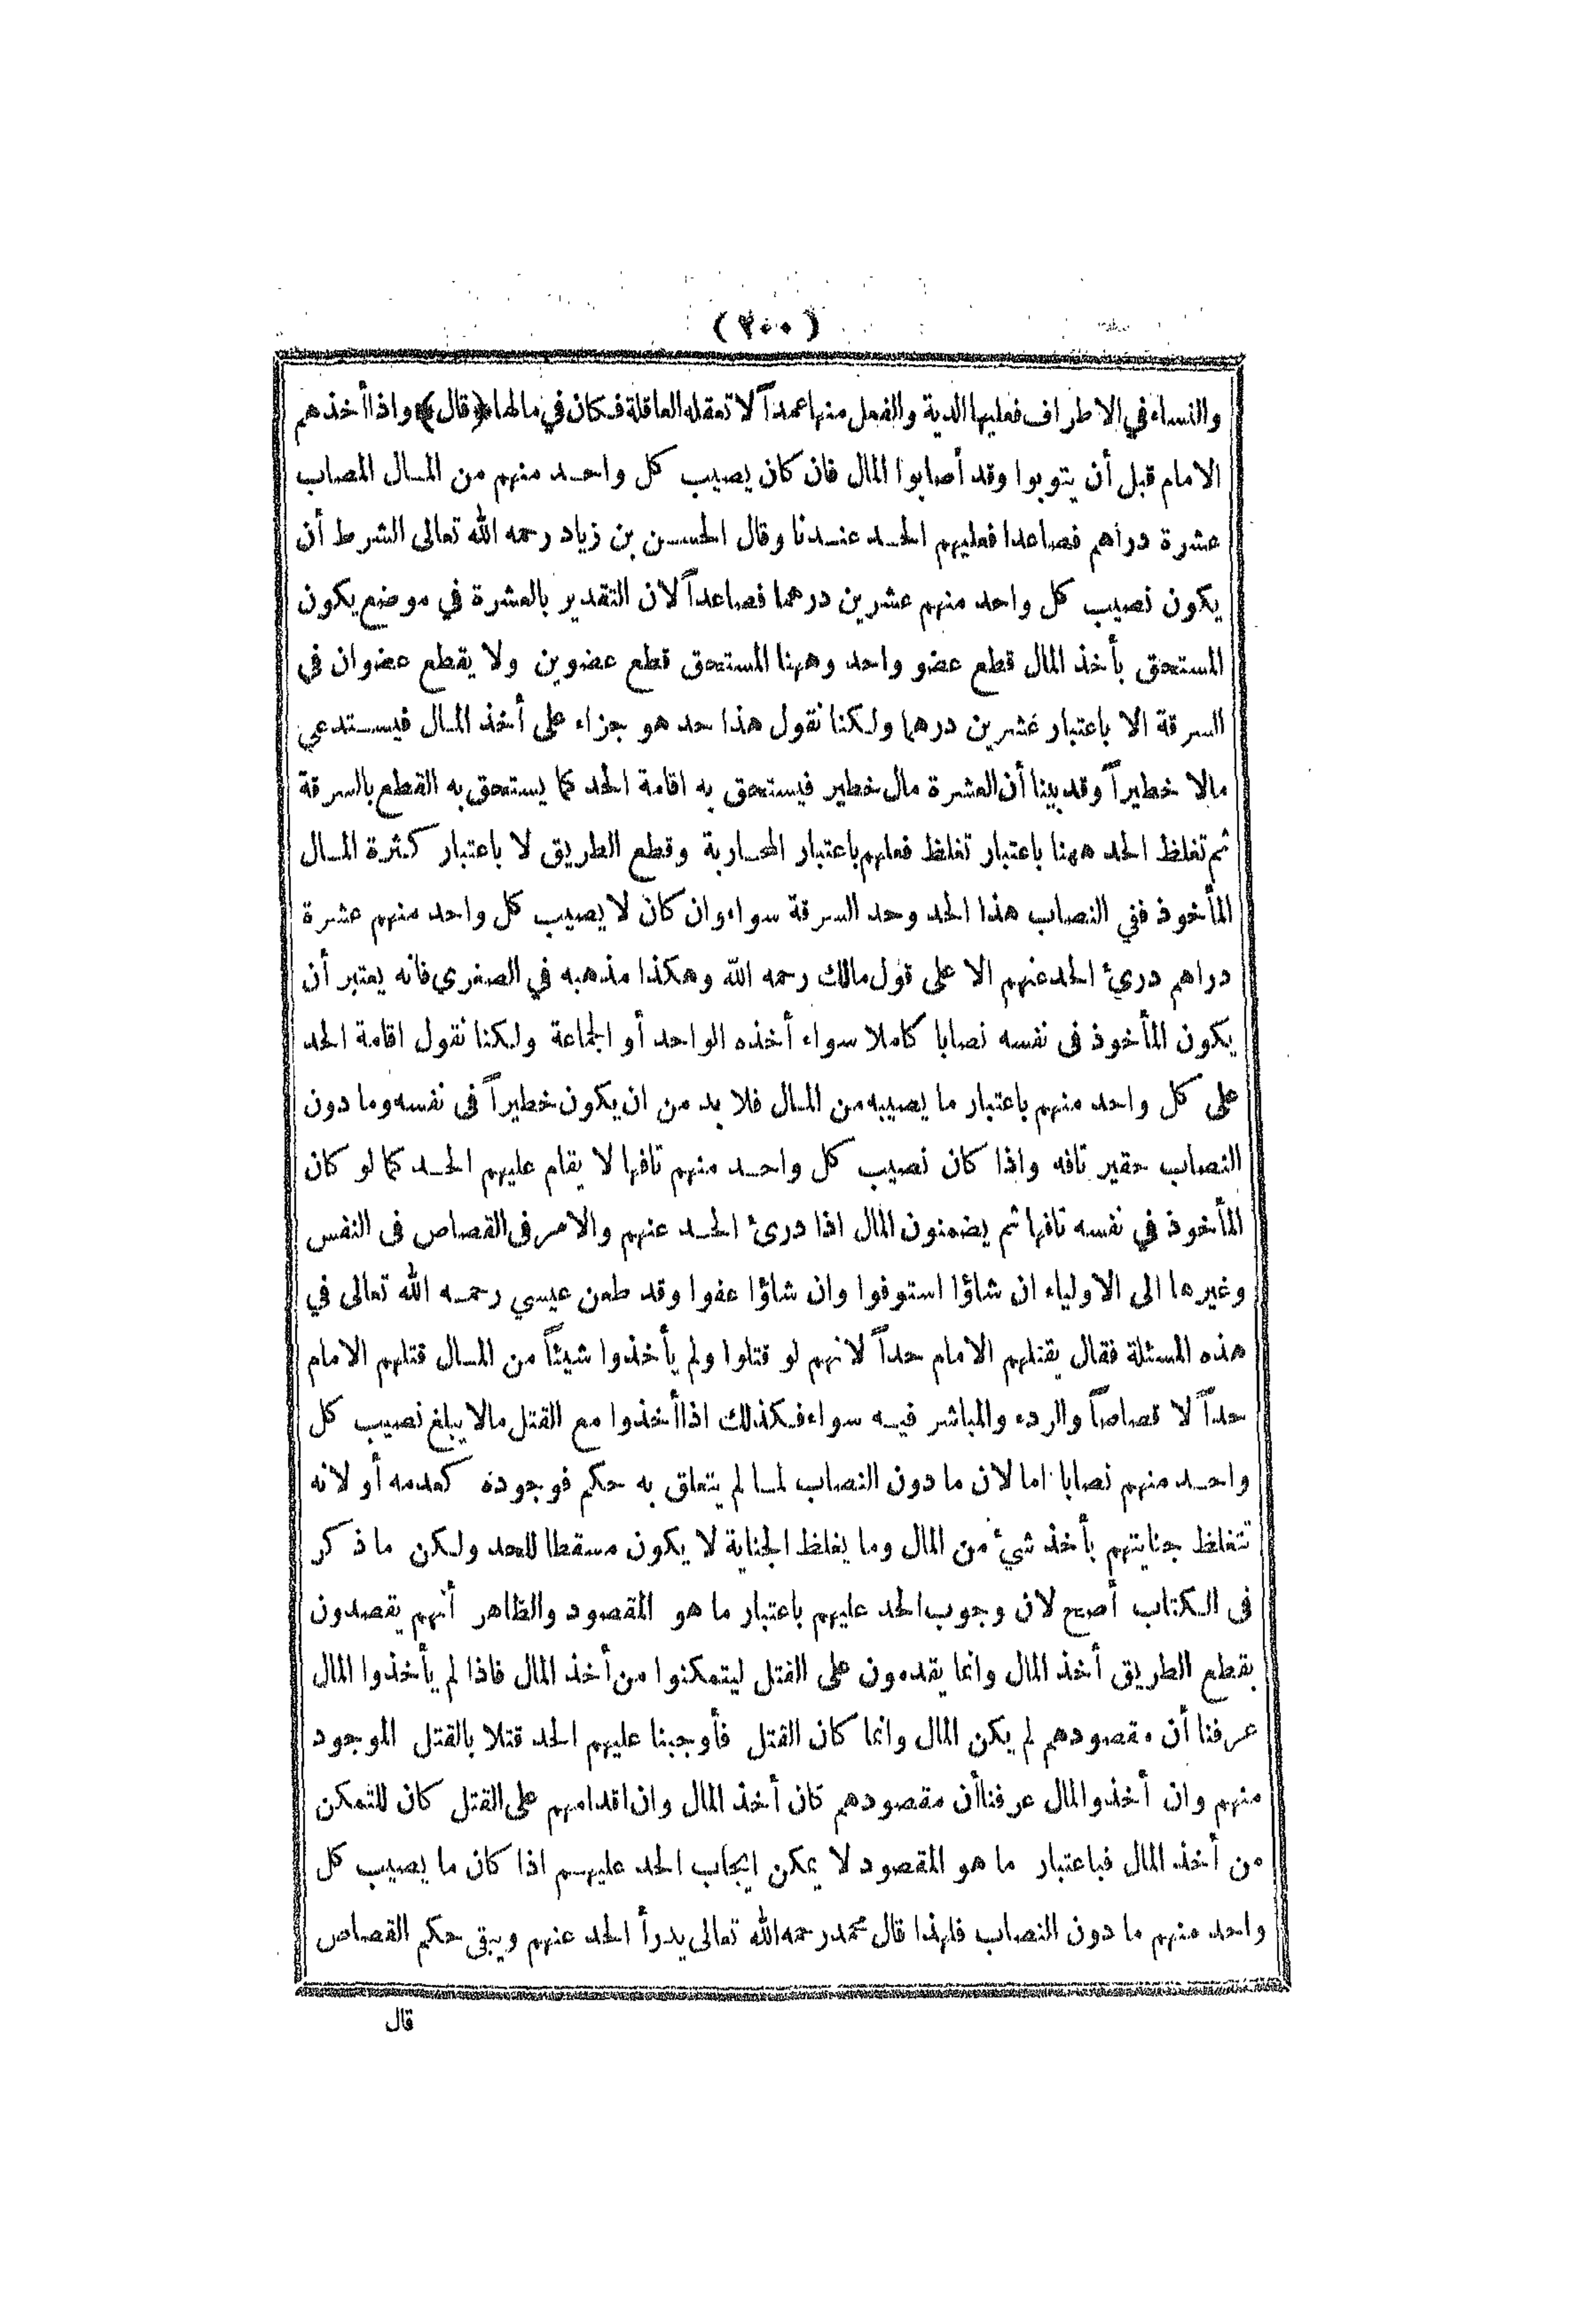 (٢٠٠)
والنساء في الاطراف فعليها الدية والفعل منها عمداً لا تعقله العاقلة فكان في مالها ﴿قال﴾ واذا أخذهم
الامام قبل أن يتوبوا وقد أصابوا المال فان كان يصيب كل واحد منهم من المال المصاب
عشرة دراهم فصاعدا فعليهم الحد عندنا وقال الحسن بن زياد رحمه الله تعالى الشرط أن
يكون نصيب كل واحد منهم عشرين درهما فصاعداً لان التقدير بالعشرة في موضع يكون
المستحق بأخذ المال قطع عضو واحد وههنا المستحق قطع عضوين ولا يقطع عضوان في
السرقة الا باعتبار عشرين درهما ولكنا نقول هذا حد هو جزاء على أخذ المال فيستدعي
مالا خطيراً وقد بينا أن العشرة مال خطير فيستحق به اقامة الحد كما يستحق به القطع بالسرقة
ثم تغلظ الحد ههنا باعتبار تغلظ فعلهم باعتبار المحاربة وقطع الطريق لا باعتبار كثرة المال
المأخوذ ففي النصاب هذا الحد وحد السرقة سواء وان كان لا يصيب كل واحد منهم عشرة
دراهم درئ الحد عنهم الا على قول مالك رحمه الله وهكذا مذهبه في الصغرى فانه يعتبر أن
يكون المأخوذ في نفسه نصابا كاملا سواء أخذه الواحد أو الجماعة ولكنا نقول اقامة الحد
على كل واحد منهم باعتبار ما يصيبه من المال فلا بد من ان يكون خطيراً في نفسه وما دون
النصاب حقير تافه واذا كان نصيب كل واحد منهم تافها لا يقام عليهم الحد كما لو كان
المأخوذ في نفسه تافها ثم يضمنون المال اذا درئ الحد عنهم والامر في القصاص في النفس
وغيرها الى الاولياء ان شاؤا استوفوا وان شاؤا عفوا وقد طعن عيسي رحمه الله تعالى في
هذه المسئلة فقال يقتلهم الامام حداً لانهم لو قتلوا ولم يأخذوا شيئاً من المال قتلهم الامام
حداً لا قصاصاً والردء والمباشر فيه سواء فكذلك اذا أخذوا مع القتل مالا يبلغ نصيب كل
واحد منهم نصابا اما لان ما دون النصاب لما لم يتعلق به حكم فوجوده كعدمه أو لانه
تتغلظ جنايتهم بأخذ شيئ من المال وما يغلظ الجناية لا يكون مسقطا للحد ولكن ما ذكر
في الكتاب أصح لان وجوب الحد عليهم باعتبار ما هو المقصود والظاهر أنهم يقصدون
بقطع الطريق أخذ المال وانما يقدمون على القتل ليتمكنوا من أخذ المال فاذا لم يأخذوا المال
عرفنا أن مقصودهم لم يكن المال وانما كان القتل فأوجبنا عليهم الحد قتلا بالقتل الموجود
منهم وان أخذوا المال عرفنا أن مقصودهم كان أخذ المال وان اقدامهم على القتل كان للتمكن
من أخذ المال فباعتبار ما هو المقصود لا يمكن ايجاب الحد عليهم اذا كان ما يصيب كل
واحد منهم ما دون النصاب فلهذا قال محمد رحمه الله تعالى يدرأ الحد عنهم ويبقى حكم القصاص
قال